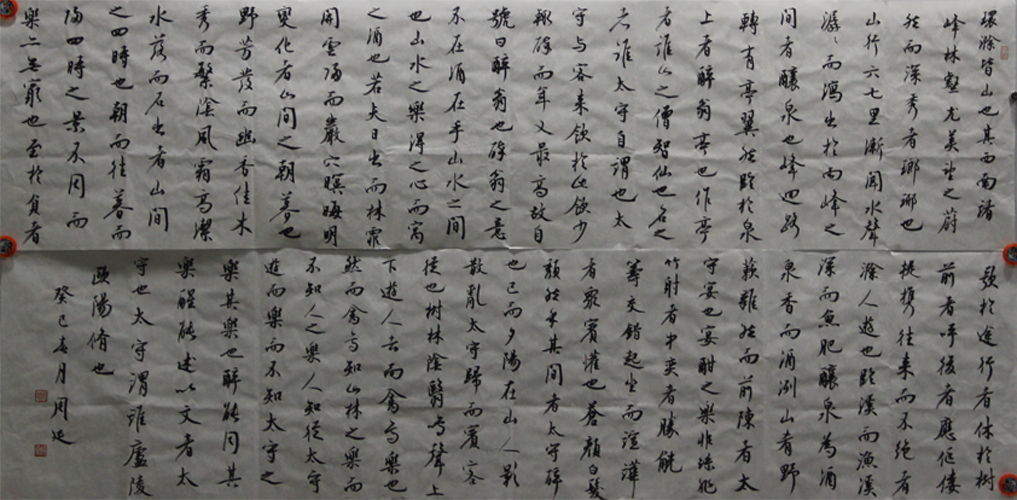 環滁皆山也其西南諸
峰林壑尤美望之蔚
然而深秀者瑯琊也
山行六七里漸聞水聲
潺潺而瀉出於兩峰之
間者釀泉也峰回路
轉有亭翼然臨於泉
上者醉翁亭也作亭
者誰山之僧智仙也名之
者誰太守自謂也太
守与客来飲於此飲少
輒醉而年又最高故自
號曰醉翁也醉翁之意
不在酒在乎山水之間
也山水之樂得之心而寓
之酒也若夫日出而林霏
開雲歸而巖穴暝晦明
變化者山間之朝暮也
野芳發而幽香佳木
秀而繁陰風霜高潔
水落而石出者山間
之四時也朝而往暮而
歸四時之景不同而
樂亦無窮也至於負者
歌於途行者休於樹
前者呼後者應傴僂
提攜往来而不絕者
滁人遊也臨溪而漁溪
深而魚肥釀泉為酒
泉香而酒洌山肴野
蔌雜然而前陳者太
守宴也宴酣之樂非絲非
竹射者中奕者勝觥
籌交錯起坐而諠譁
者眾賓懽也蒼顔白髮
頹然乎其間者太守醉
也已而夕陽在山人影
散亂太守歸而賓客
從也樹林陰翳鳴聲上
下遊人去而禽鳥樂也
然而禽鳥知山林之樂而
不知人之樂人知從太守
遊而樂而不知太守之
樂其樂也醉能同其
樂醒能述以文者太
守也太守謂誰廬陵
歐陽脩也
癸巳春月周